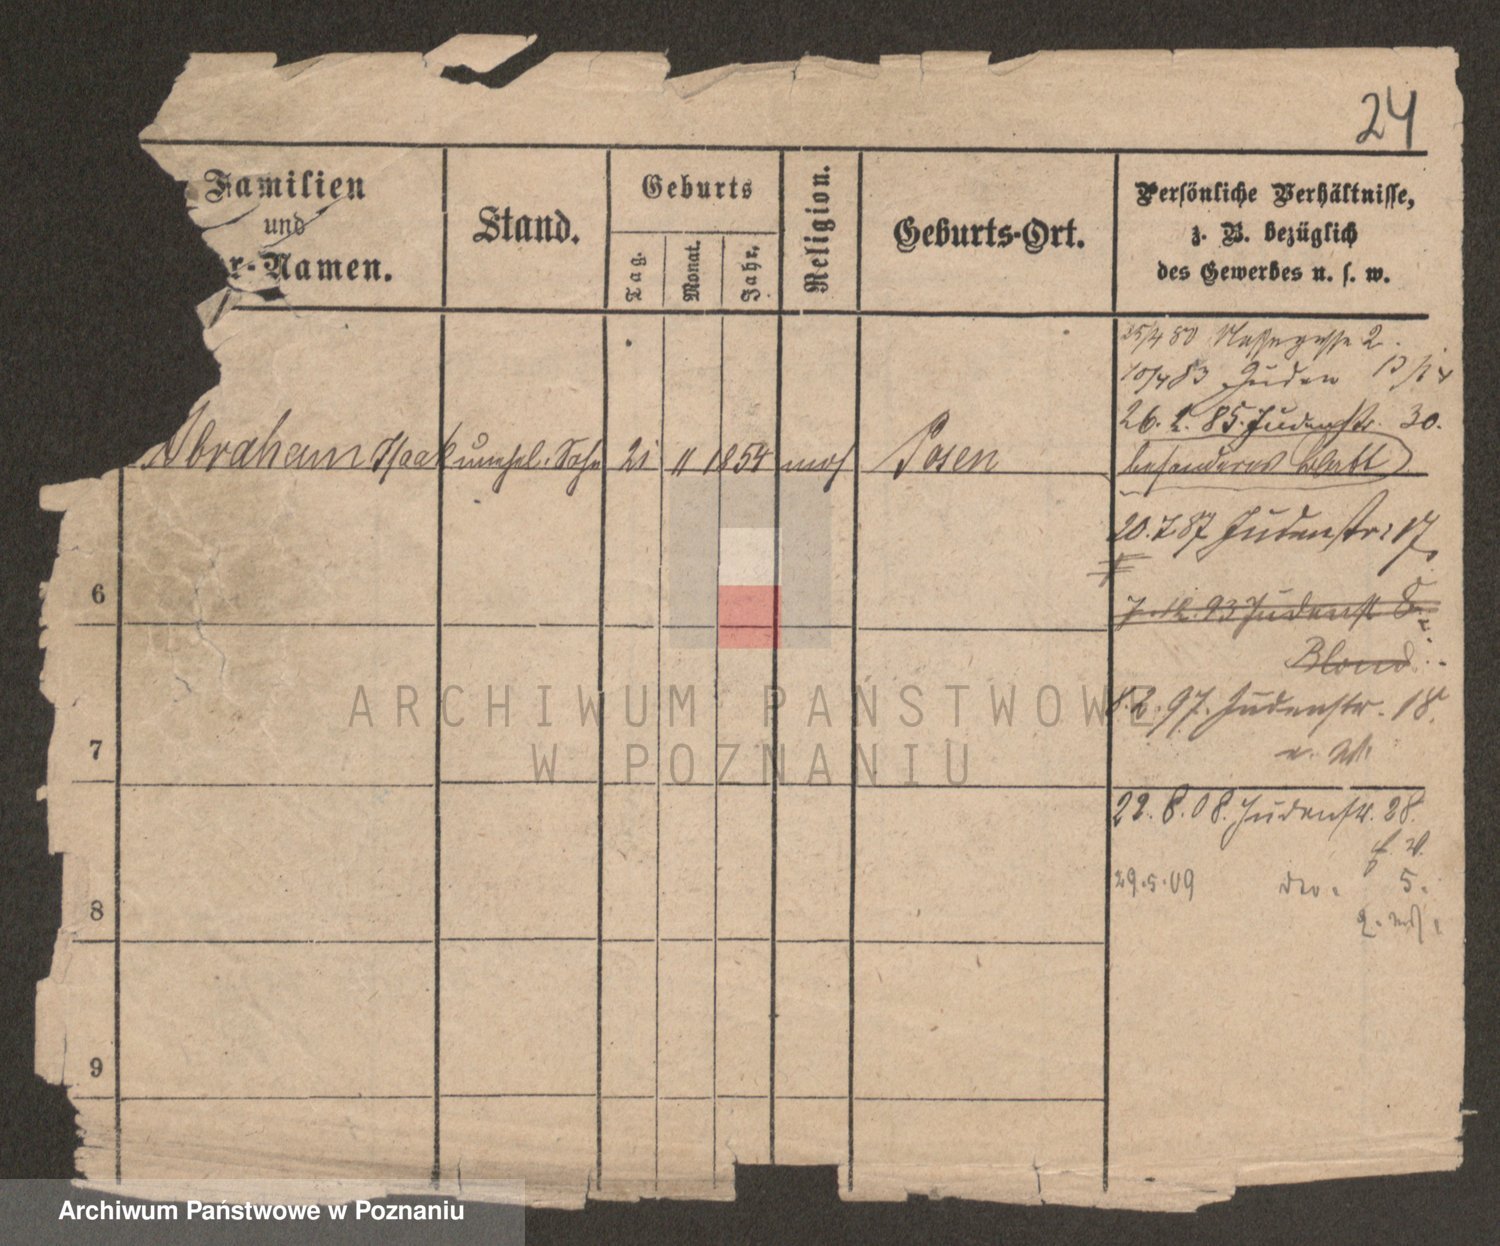 24
Familien
und
r-Namen.
Stand.
Geburts
Tag.
Monat.
Jahr.
Religion.
Geburts-Ort.
Persönliche Verhältnisse,
z. B. bezüglich
des Gewerbes u. s. w.
25/4 80 2.
10/4 83 Juden
26. 2. 85. Judenstr. 30.
Abraham Isaak unehel. Sohn 21 11 1854 mos Posen
besonderes Blatt
20.7.87 Judenstr. 17
6
7.12.93 Judenstr 8
Blond
8.2.97. Judenstr. 18.
7
22.8.08. Judenstr. 28.
29.5.09 do. 5.
8
9
ARCHIWUM PAŃSTWOWE
W POZNANIU
Archiwum Państwowe w Poznaniu